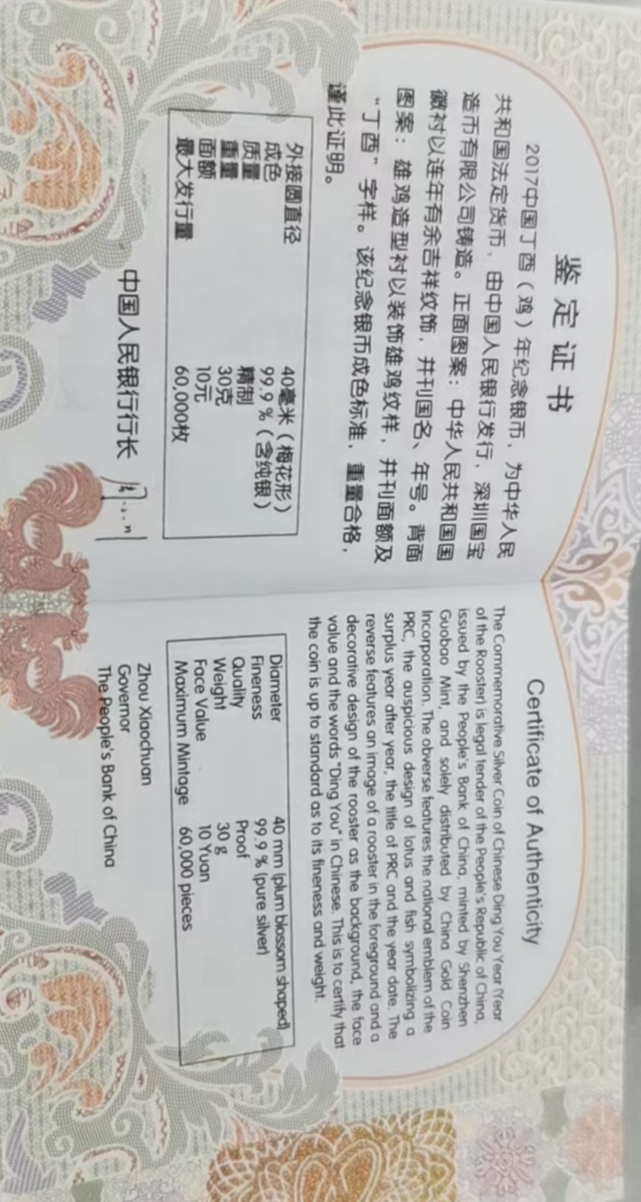 鉴定证书
2017中国丁酉（鸡）年纪念银币，为中华人民
共和国法定货币，由中国人民银行发行，深圳国宝
造币有限公司铸造。正面图案：中华人民共和国国
徽衬以连年有余吉祥纹饰，并刊国名、年号。背面
图案：雄鸡造型衬以装饰雄鸡纹样，并刊面额及
“丁酉”字样。该纪念银币成色标准，重量合格，
谨此证明。
外接圆直径 40毫米（梅花形）
成色 99.9％（含纯银）
质量 精制
重量 30克
面额 10元
最大发行量 60,000枚
中国人民银行行长
Certificate of Authenticity
The Commemorative Silver Coin of Chinese Ding You Year (Year
of the Rooster) is legal tender of the People's Republic of China,
issued by the People's Bank of China, minted by Shenzhen
Guobao Mint, and solely distributed by China Gold Coin
Incorporation. The obverse features the national emblem of the
PRC, the auspicious design of lotus and fish symbolizing a
surplus year after year, the title of PRC and the year date. The
reverse features an image of a rooster in the foreground and a
decorative design of the rooster as the background, the face
value and the words "Ding You" in Chinese. This is to certify that
the coin is up to standard as to its fineness and weight.
Diameter 40 mm (plum blossom shaped)
Fineness 99.9 % (pure silver)
Quality Proof
Weight 30 g
Face Value 10 Yuan
Maximum Mintage 60,000 pieces
Zhou Xiaochuan
Governor
The People's Bank of China